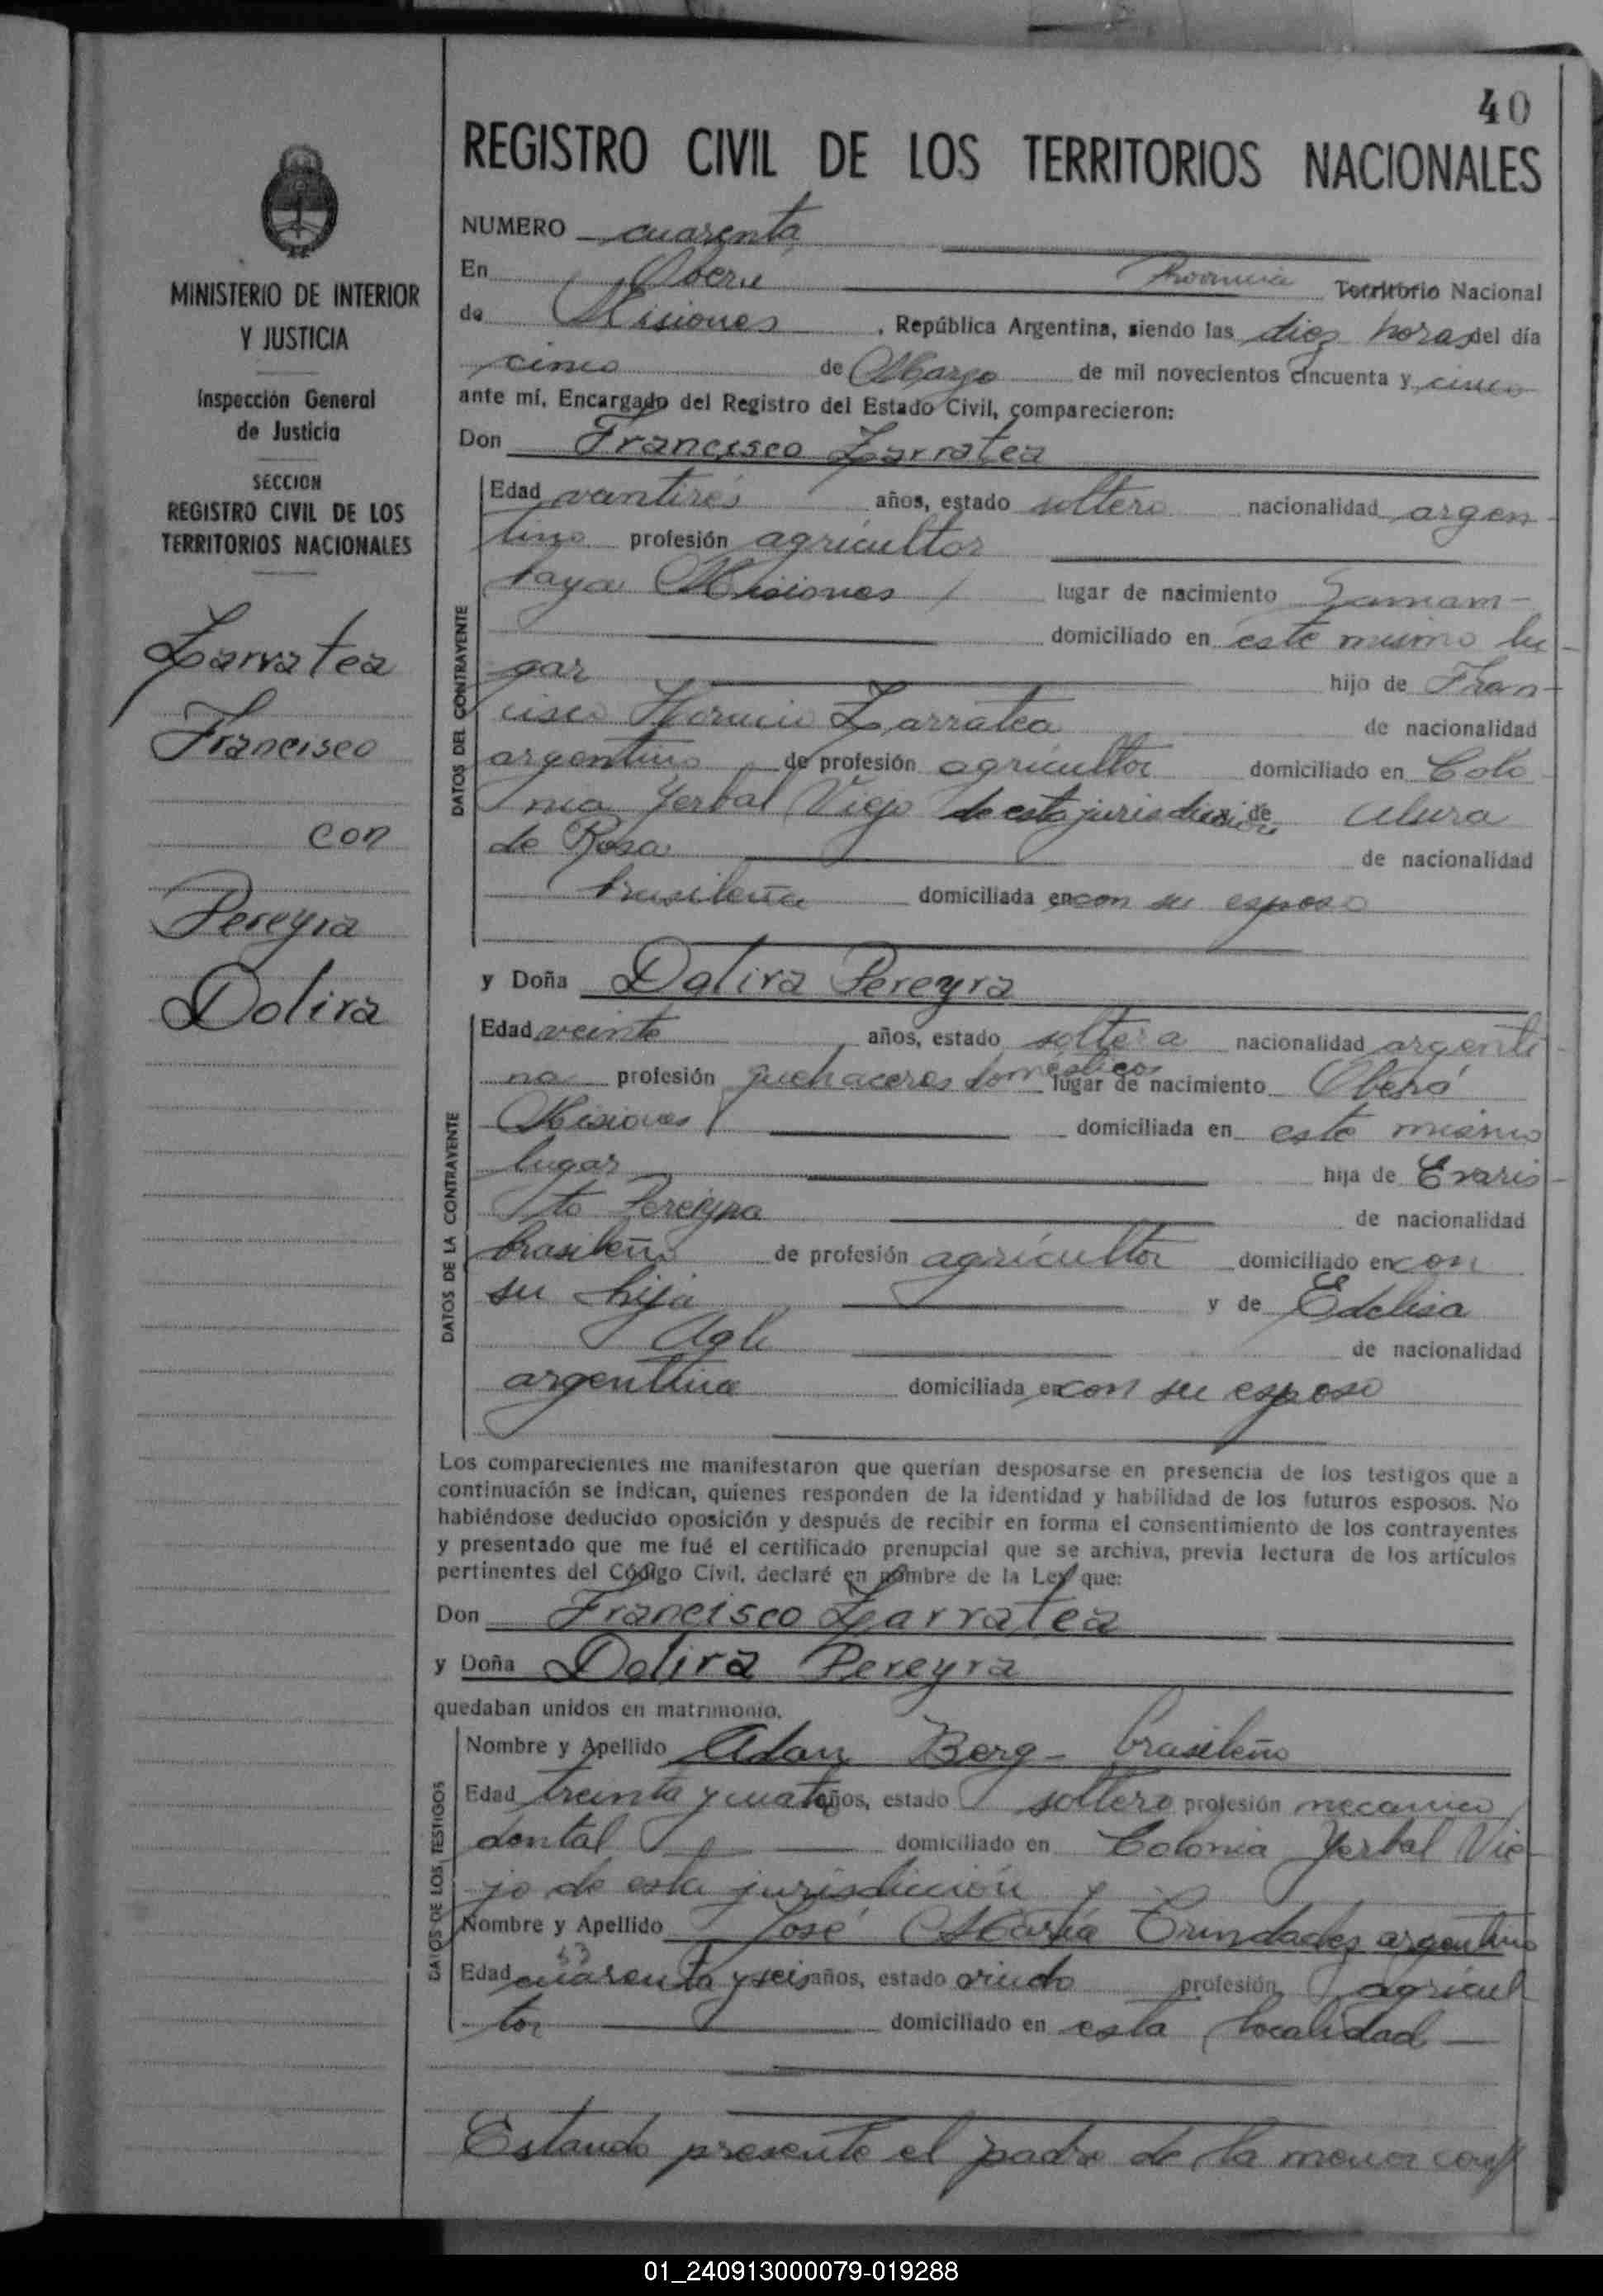 40
REGISTRO CIVIL DE LOS TERRITORIOS NACIONALES
MINISTERIO DE INTERIOR
Y JUSTICIA
Inspección General
de Justicia
SECCION
REGISTRO CIVIL DE LOS
TERRITORIOS NACIONALES
Zarratea
Francisco
con
Pereyra
Dolira
NUMERO cuarenta
En Oberá Provincia Territorio Nacional
de Misiones, República Argentina, siendo las diez horas del día
cinco de Marzo de mil novecientos cincuenta y cinco
ante mí, Encargado del Registro del Estado Civil, comparecieron:
Don Francisco Zarratea
DATOS DEL CONTRAYENTE
Edad años, estado soltero nacionalidad argen-
tino profesión agricultor
Misiones lugar de nacimiento
domiciliado en este mismo lu-
gar hijo de Fran-
cisco Horacio Zarratea de nacionalidad
argentino de profesión agricultor domiciliado en Colo-
nia Yerbal Viejo de esta jurisdicción y de
de Rosa de nacionalidad
brasileña domiciliada en con su esposo
y Doña Dolira Pereyra
DATOS DE LA CONTRAYENTE
Edad veinte años, estado soltera nacionalidad argenti-
na profesión quehaceres domésticos lugar de nacimiento Oberá
Misiones domiciliada en este mismo
lugar hija de Evaris-
to Pereyra de nacionalidad
brasileño de profesión agricultor domiciliado en con
su hija y de Edelisa
de nacionalidad
argentina domiciliada en con su esposo
Los comparecientes me manifestaron que querían desposarse en presencia de los testigos que a
continuación se indican, quienes responden de la identidad y habilidad de los futuros esposos. No
habiéndose deducido oposición y después de recibir en forma el consentimiento de los contrayentes
y presentado que me fué el certificado prenupcial que se archiva, previa lectura de los artículos
pertinentes del Código Civil, declaré en nombre de la Ley que:
Don Francisco Zarratea
y Doña Dolira Pereyra
quedaban unidos en matrimonio.
DATOS DE LOS TESTIGOS
Nombre y Apellido Adan Berg - brasileño
Edad treinta y cuatro años, estado soltero profesión mecanico
dental domiciliado en Colonia Yerbal Vie-
jo de esta jurisdicción y
Nombre y Apellido José María Trindadez argentino
Edad cuarenta y seis años, estado viudo profesión agricul
tor domiciliado en esta localidad
Estando presente el padre de la menor
01_240913000079-019288